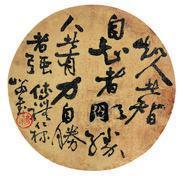 知人者智
自知者明勝
人者有力自勝
者强